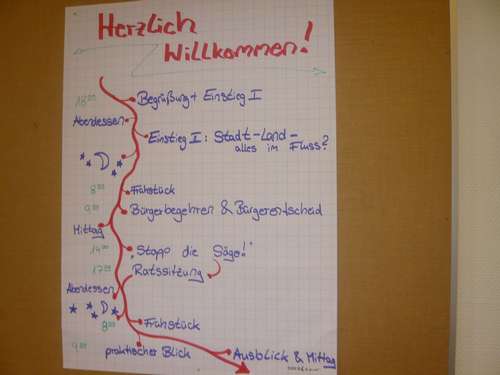 Herzlich
Willkommen!
18⁰⁰ Begrüßung + Einstieg I
Abendessen
Einstieg II: Stadt-Land-
alles im Fluss?
8⁰⁰ Frühstück
9⁰⁰ Bürgerbegehren & Bürgerentscheid
Mittag
14⁰⁰ "Stopp die Säge!"
17⁰⁰ Ratssitzung
Abendessen
8⁰⁰ Frühstück
9⁰⁰ praktischer Blick
Ausblick & Mittag